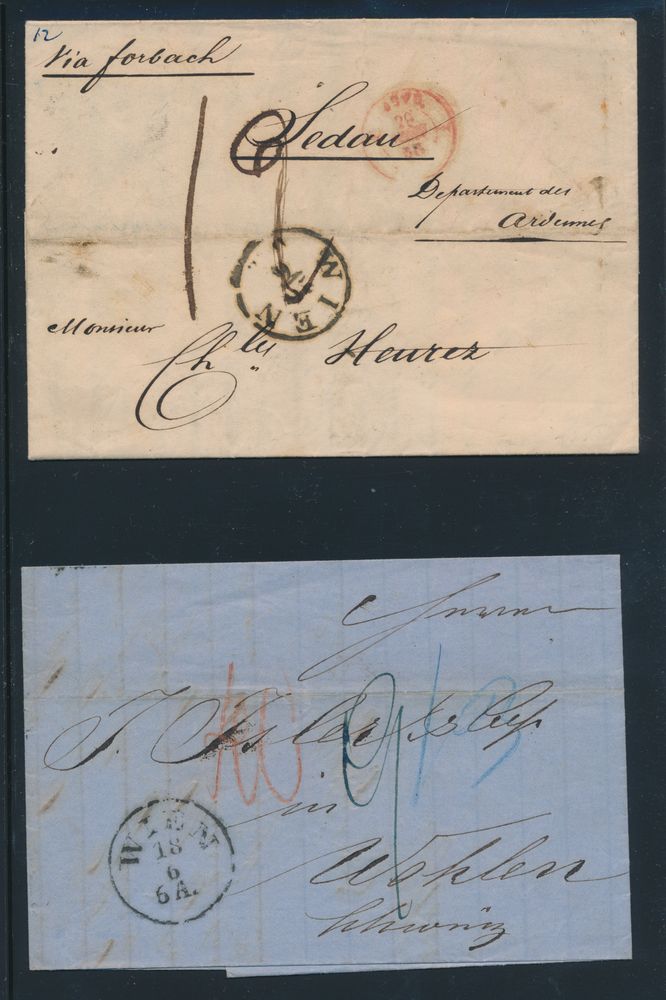 12
Via forbach
Sedan
Departement des
Ardennes
WIEN
Monsieur
Ch les Heurez
Herrn
J. Isler & Co
in
Wohlen
Schweiz
WIEN
18
6
6 A.